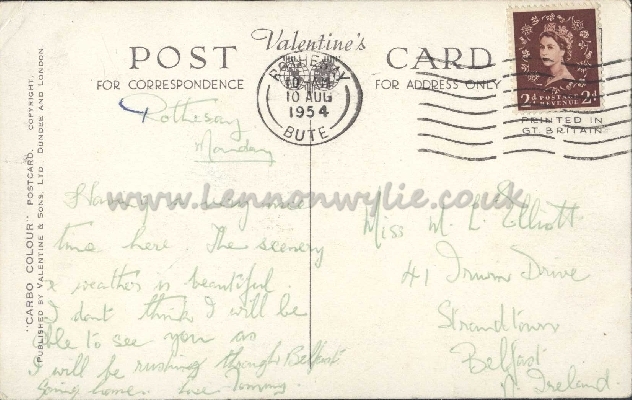 Valentine's
POST CARD
FOR CORRESPONDENCE
FOR ADDRESS ONLY
ROTHESAY
10 AUG
1954
BUTE
2d POSTAGE REVENUE 2d
PRINTED IN
GT. BRITAIN
"CARBO COLOUR" POSTCARD. COPYRIGHT.
PUBLISHED BY VALENTINE & SONS, LTD DUNDEE AND LONDON
www.Lennonwylie.co.uk
Rothesay
Monday
Having a very nice
time here. The scenery
& weather is beautiful.
I don't think I will be
able to see you as
I will be rushing through Belfast
going home. Love Tommy.
Miss M. L. Elliott
41 Irwin Drive
Strandtown
Belfast
N. Ireland.